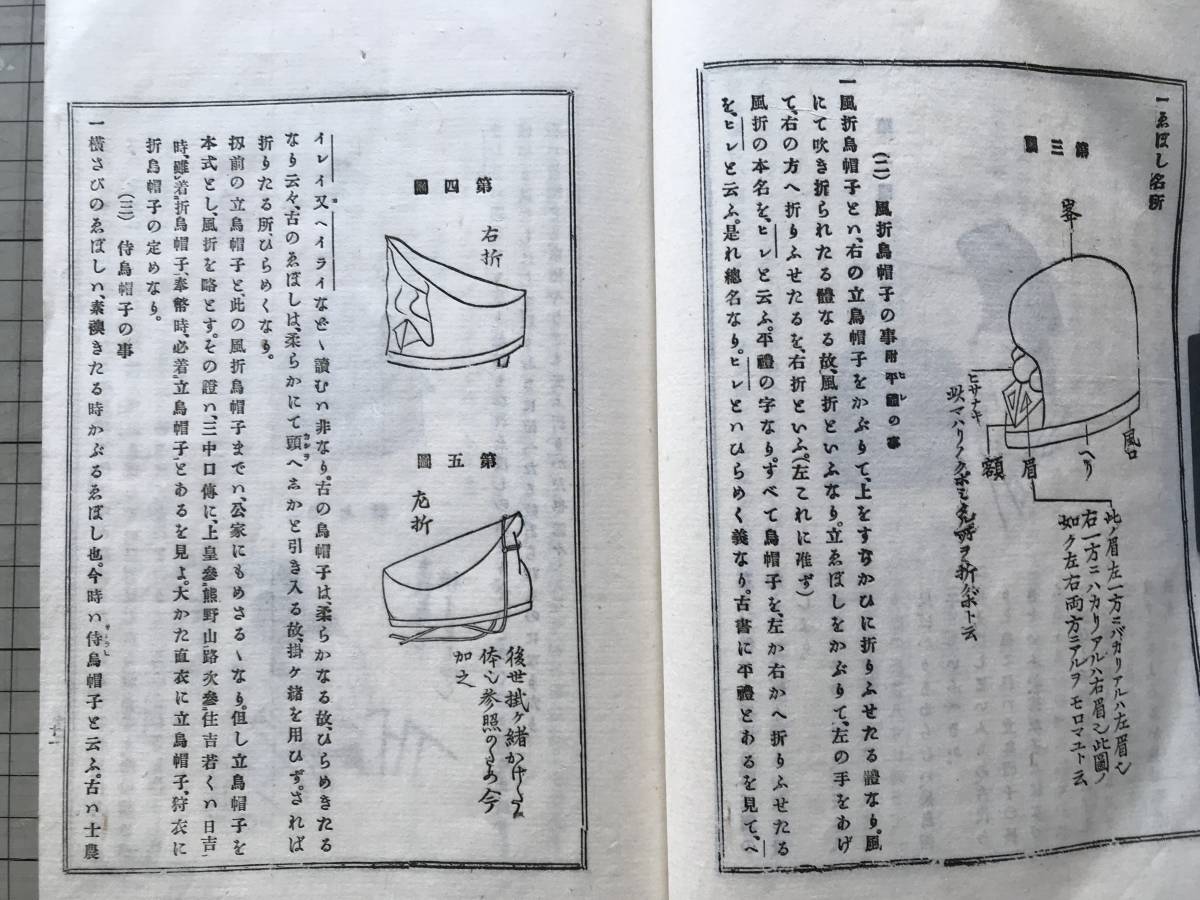 一ゑぼし名所
第三圖
峯
風口
ヘリ
眉
額
ヒサナキ
此ノ眉左一方ニバカリアルハ左眉也
右一方ニハカリアルハ右眉也此圖ノ
如ク左右両方ニアルヲモロマユト云
(二) 風折烏帽子の事附平禮の事
一風折烏帽子とハ、右の立烏帽子をかぶりて、上をすぢかひに折りふせたる體なり。風
にて吹き折られたる體なる故、風折といふなり。立ゑぼしをかぶりて、左の手をあげ
て、右の方へ折りふせたるを、右折といふ。(左これに准ず)
風折の本名を、ヒレと云ふ。平禮の字なり。すべて烏帽子を、左か右かへ折りふせたる
を、ヒレと云ふ。是れ總名なり。ヒレといひらめく義なり。古書に平禮とあるを見て、ヘ
第四圖
右折
第五圖
左折
後世掛ケ緒かけ
体也参照のため今
加之
イレイ又ヘイライなど讀むハ非なり。古の烏帽子は、柔らかなる故、ひらめきたる
なり云々、古のゑぼしは、柔らかにて頭へしかと引き入る故、掛ケ緒を用ひず。されば
折りたる所、ひらめくなり。
扨前の立烏帽子と、此の風折烏帽子までハ、公家にもめさるゝなり。但し立烏帽子を
本式とし、風折を略とす。その證ハ、三中口傳に、上皇參熊野山路次參住吉若くハ日吉
時、雖着折烏帽子、奉幣時、必着立烏帽子とあるを見よ。大かた直衣に立烏帽子、狩衣に
折烏帽子の定めなり。
(三) 侍烏帽子の事
一橫さびのゑぼしハ、素襖きたる時かぶるゑぼし也。今時ハ侍烏帽子と云ふ。古ハ士農